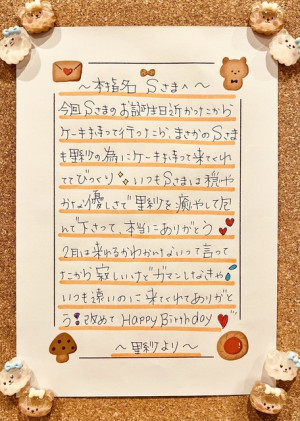 〜本指名 Sさまへ〜
今回Sさまのお誕生日近かったから
ケーキ持って行ったら、まさかのSさま
も里紗の為にケーキ持って来てくれ
ててびっくり✨いつもSさまは穏や
かな優しさで里紗を癒やして包
んで下さって、本当にありがとう❤
2月は来れるかわかんないって言って
たから寂しいけどガマンしなきゃ💧
いつも遠いのに来てくれてありがと
う❣改めてHappy Birthday❤
〜里紗より〜